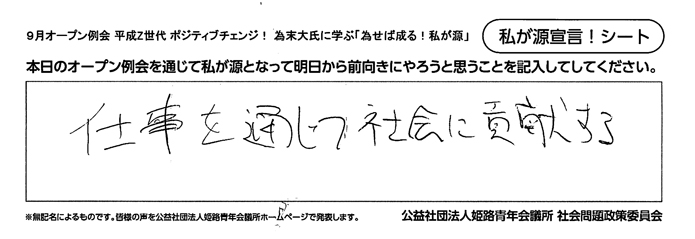 9月オープン例会 平成Z世代 ポジティブチェンジ! 為末大氏に学ぶ「為せば成る!私が源」
私が源宣言!シート
本日のオープン例会を通じて私が源となって明日から前向きにやろうと思うことを記入してしてください。
仕事を通じて社会に貢献する
※無記名によるものです。皆様の声を公益社団法人姫路青年会議所ホームページで発表します。
公益社団法人姫路青年会議所 社会問題政策委員会